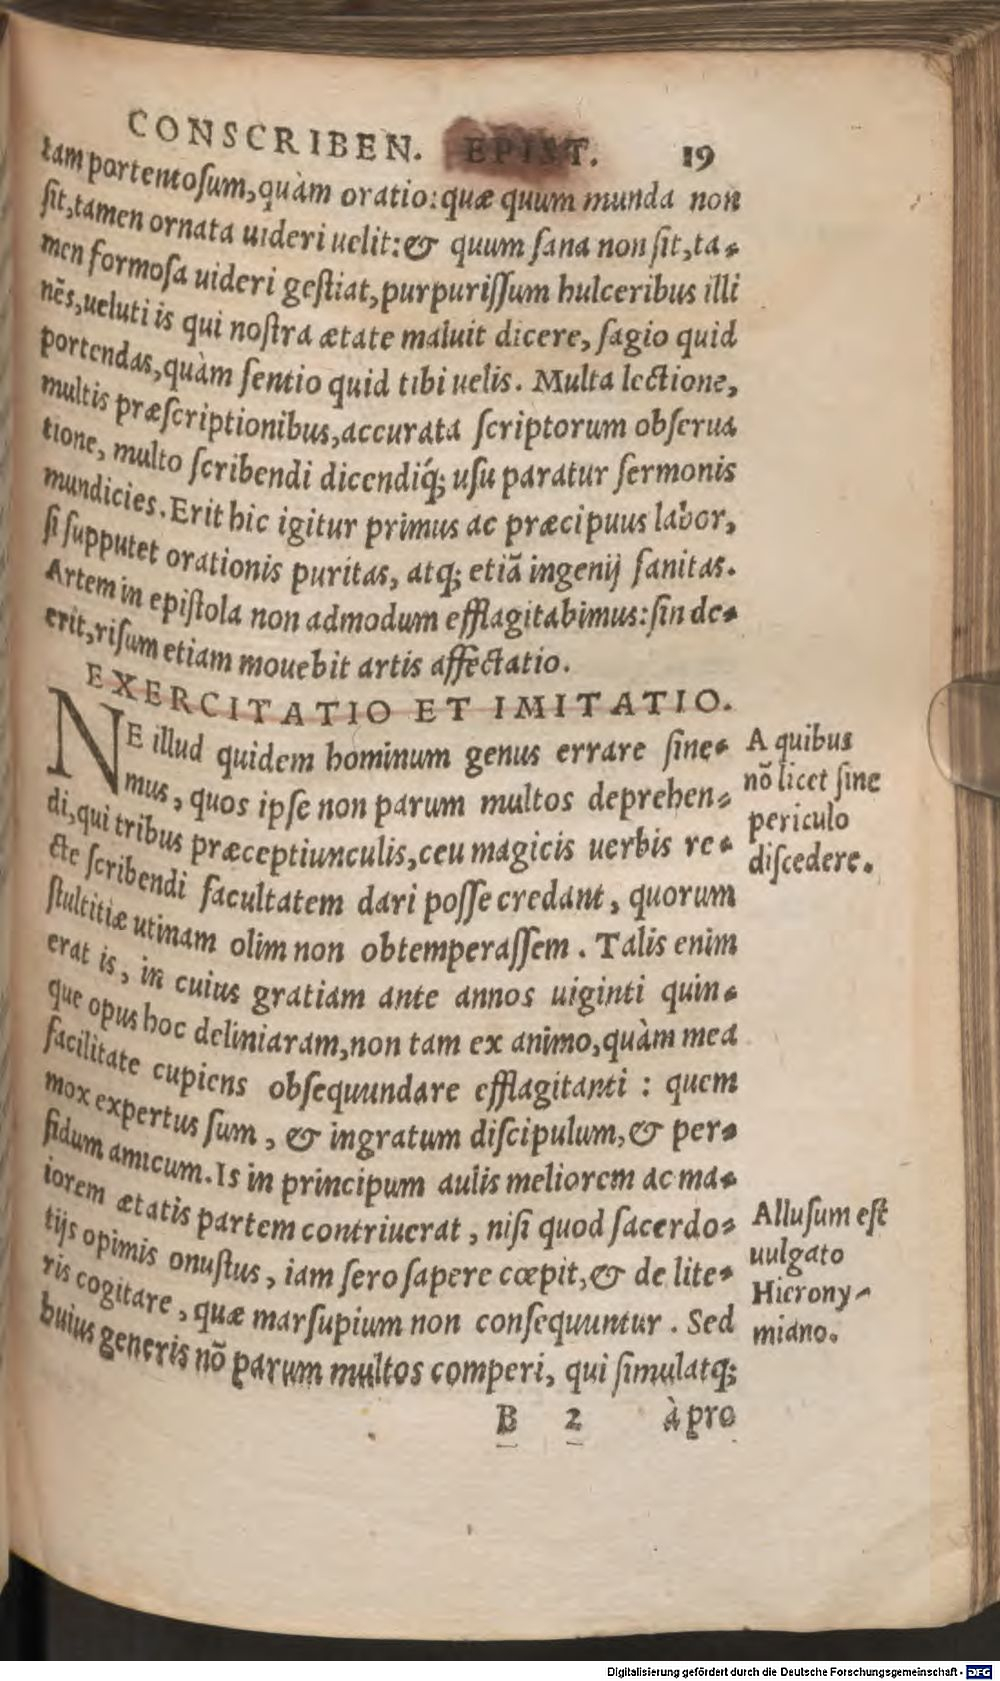 CONSCRIBEN. EPIST. 19
tam portentoſum, quàm oratio: quæ quum munda non
ſit, tamen ornata uideri uelit: & quum ſana non ſit, ta-
men formoſa uideri geſtiat, purpuriſſum hulceribus illi
nẽs, ueluti is qui noſtra ætate maluit dicere, ſagio quid
portendas, quàm ſentio quid tibi uelis. Multa lectione,
multis præſcriptionibus, accurata ſcriptorum obſerua
tione, multo ſcribendi dicendíq; uſu paratur ſermonis
mundicies. Erit hic igitur primus ac præcipuus labor,
ſi ſupputet orationis puritas, atq; etiã ingenij ſanitas.
Artem in epiſtola non admodum efflagitabimus: ſin de-
erit, riſum etiam mouebit artis affectatio.
EXERCITATIO ET IMITATIO.
NE illud quidem hominum genus errare ſine-
mus, quos ipſe non parum multos deprehen-
di, qui tribus præceptiunculis, ceu magicis uerbis re-
cte ſcribendi facultatem dari poſſe credant, quorum
ſtultitiæ utinam olim non obtemperaſſem. Talis enim
erat is, in cuius gratiam ante annos uiginti quin-
que opus hoc deliniaram, non tam ex animo, quàm mea
facilitate cupiens obſequundare efflagitanti: quem
mox expertus ſum, & ingratum diſcipulum, & per-
fidum amicum. Is in principum aulis meliorem ac ma-
iorem ætatis partem contriuerat, niſi quod ſacerdo-
tijs opimis onuſtus, iam ſero ſapere cœpit, & de lite-
ris cogitare, quæ marſupium non conſequuntur. Sed
huius generis nõ parum multos comperi, qui ſimulatq;
B 2 à pro
A quibus
nõ licet ſine
periculo
diſcedere.
Alluſum eſt
uulgato
Hierony-
miano.
Digitalisierung gefördert durch die Deutsche Forschungsgemeinschaft - DFG